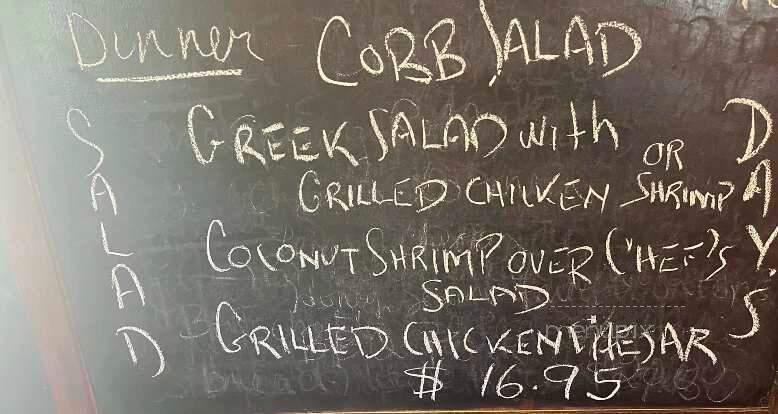 Dinner COBB SALAD
SALAD
GREEK SALAD with
GRILLED CHICKEN OR SHRIMP
COCONUT SHRIMP OVER CHEF'S
SALAD
GRILLED CHICKEN CAESAR
$ 16.95
DAY.S